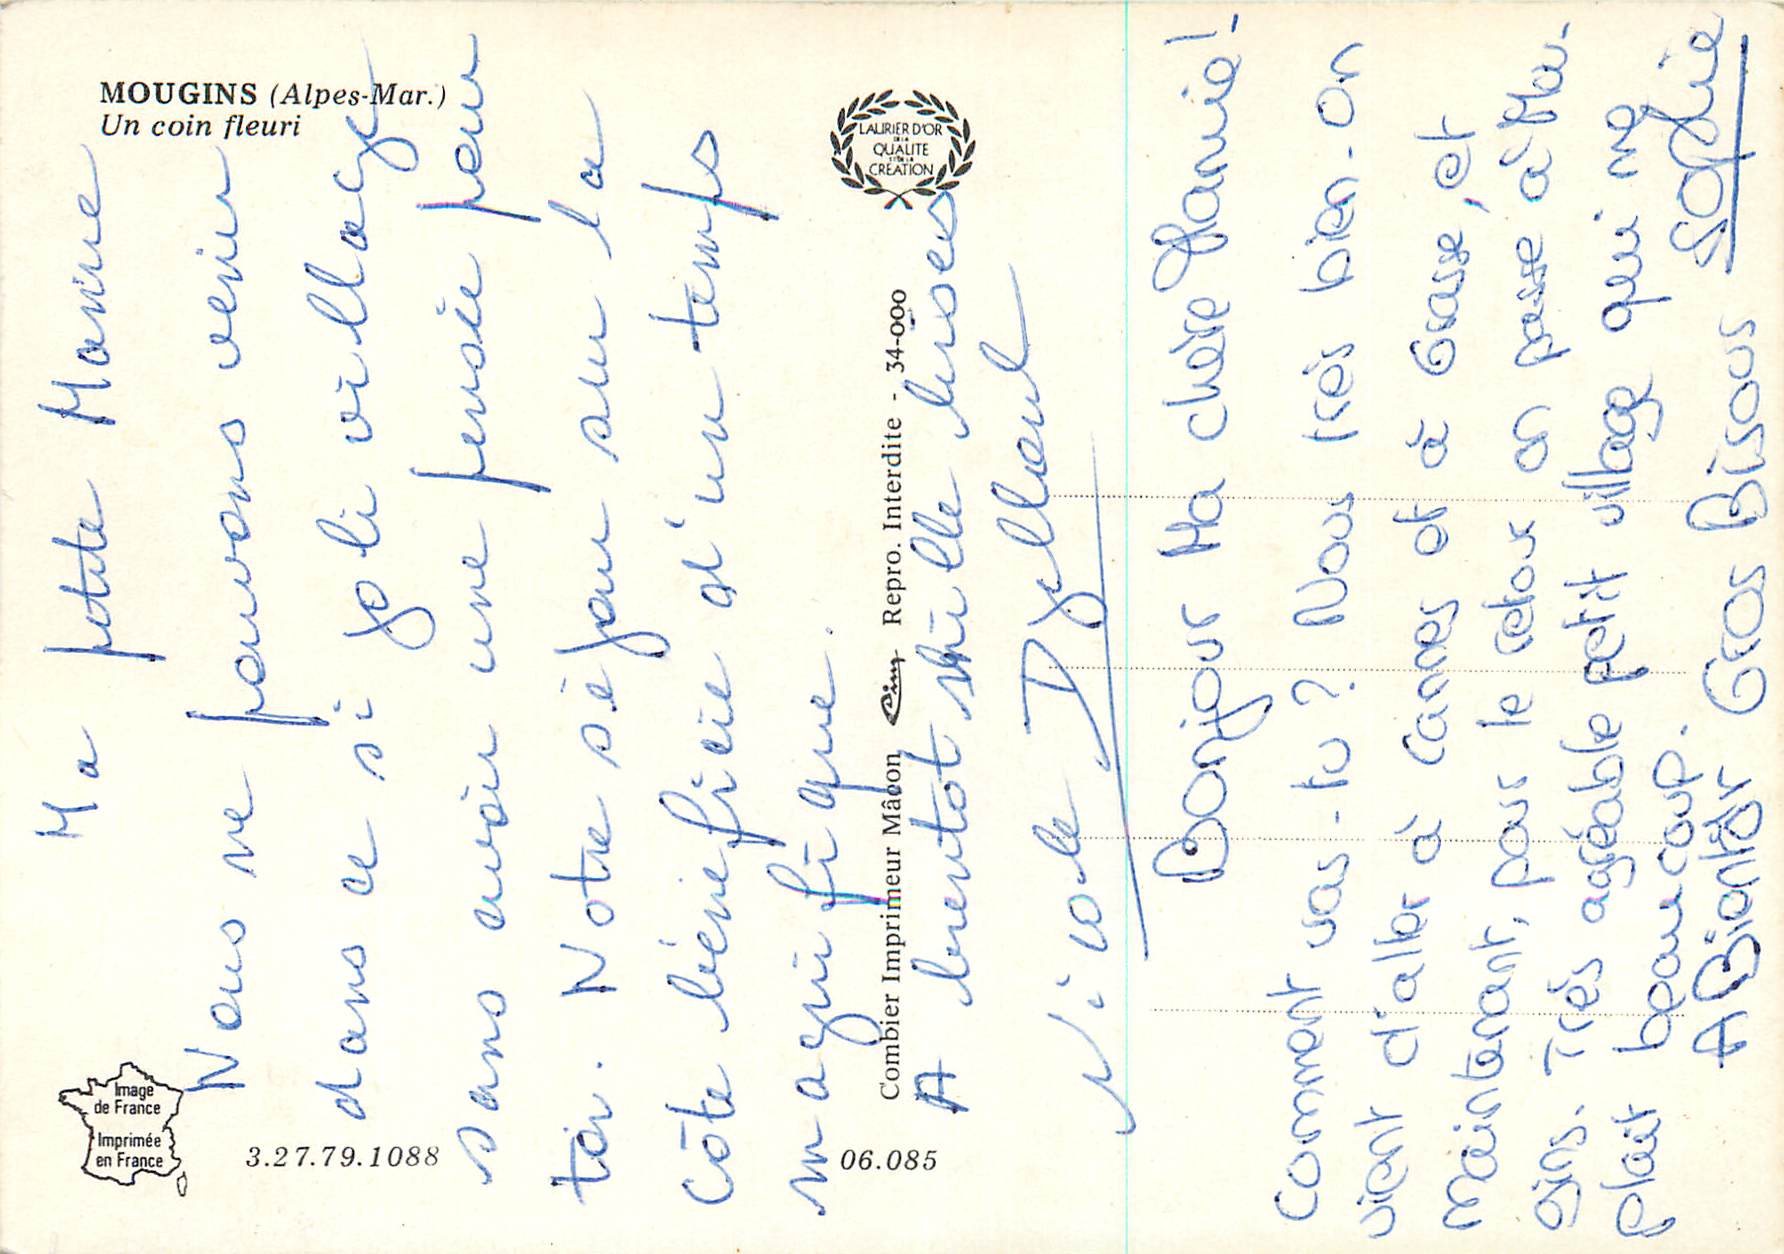 MOUGINS (Alpes-Mar.)
Un coin fleuri
LAURIER D'OR
DE LA
QUALITE
ET DE LA
CREATION
Image
de France
Imprimée
en France
3.27.79.1088
06.085
Combier Imprimeur Mâcon Cim Repro. Interdite - 34-000
Ma petite Mamie
Nous ne pouvons venir
dans ce si joli village
sans avoir une pensée pour
toi. Notre séjour sur la
Côte bénéficie d'un temps
magnifique.
A bientôt mille bises
Nicole
Bonjour Ma chère Mamie!
Comment vas-tu? Nous très bien. On
vient d'aller à Cannes et à Grasse, et
maintenant, pour le retour on passe à Mou-
gins. Très agréable petit village qui me
plaît beaucoup.
A Bientôt Gros Bisous Sophie